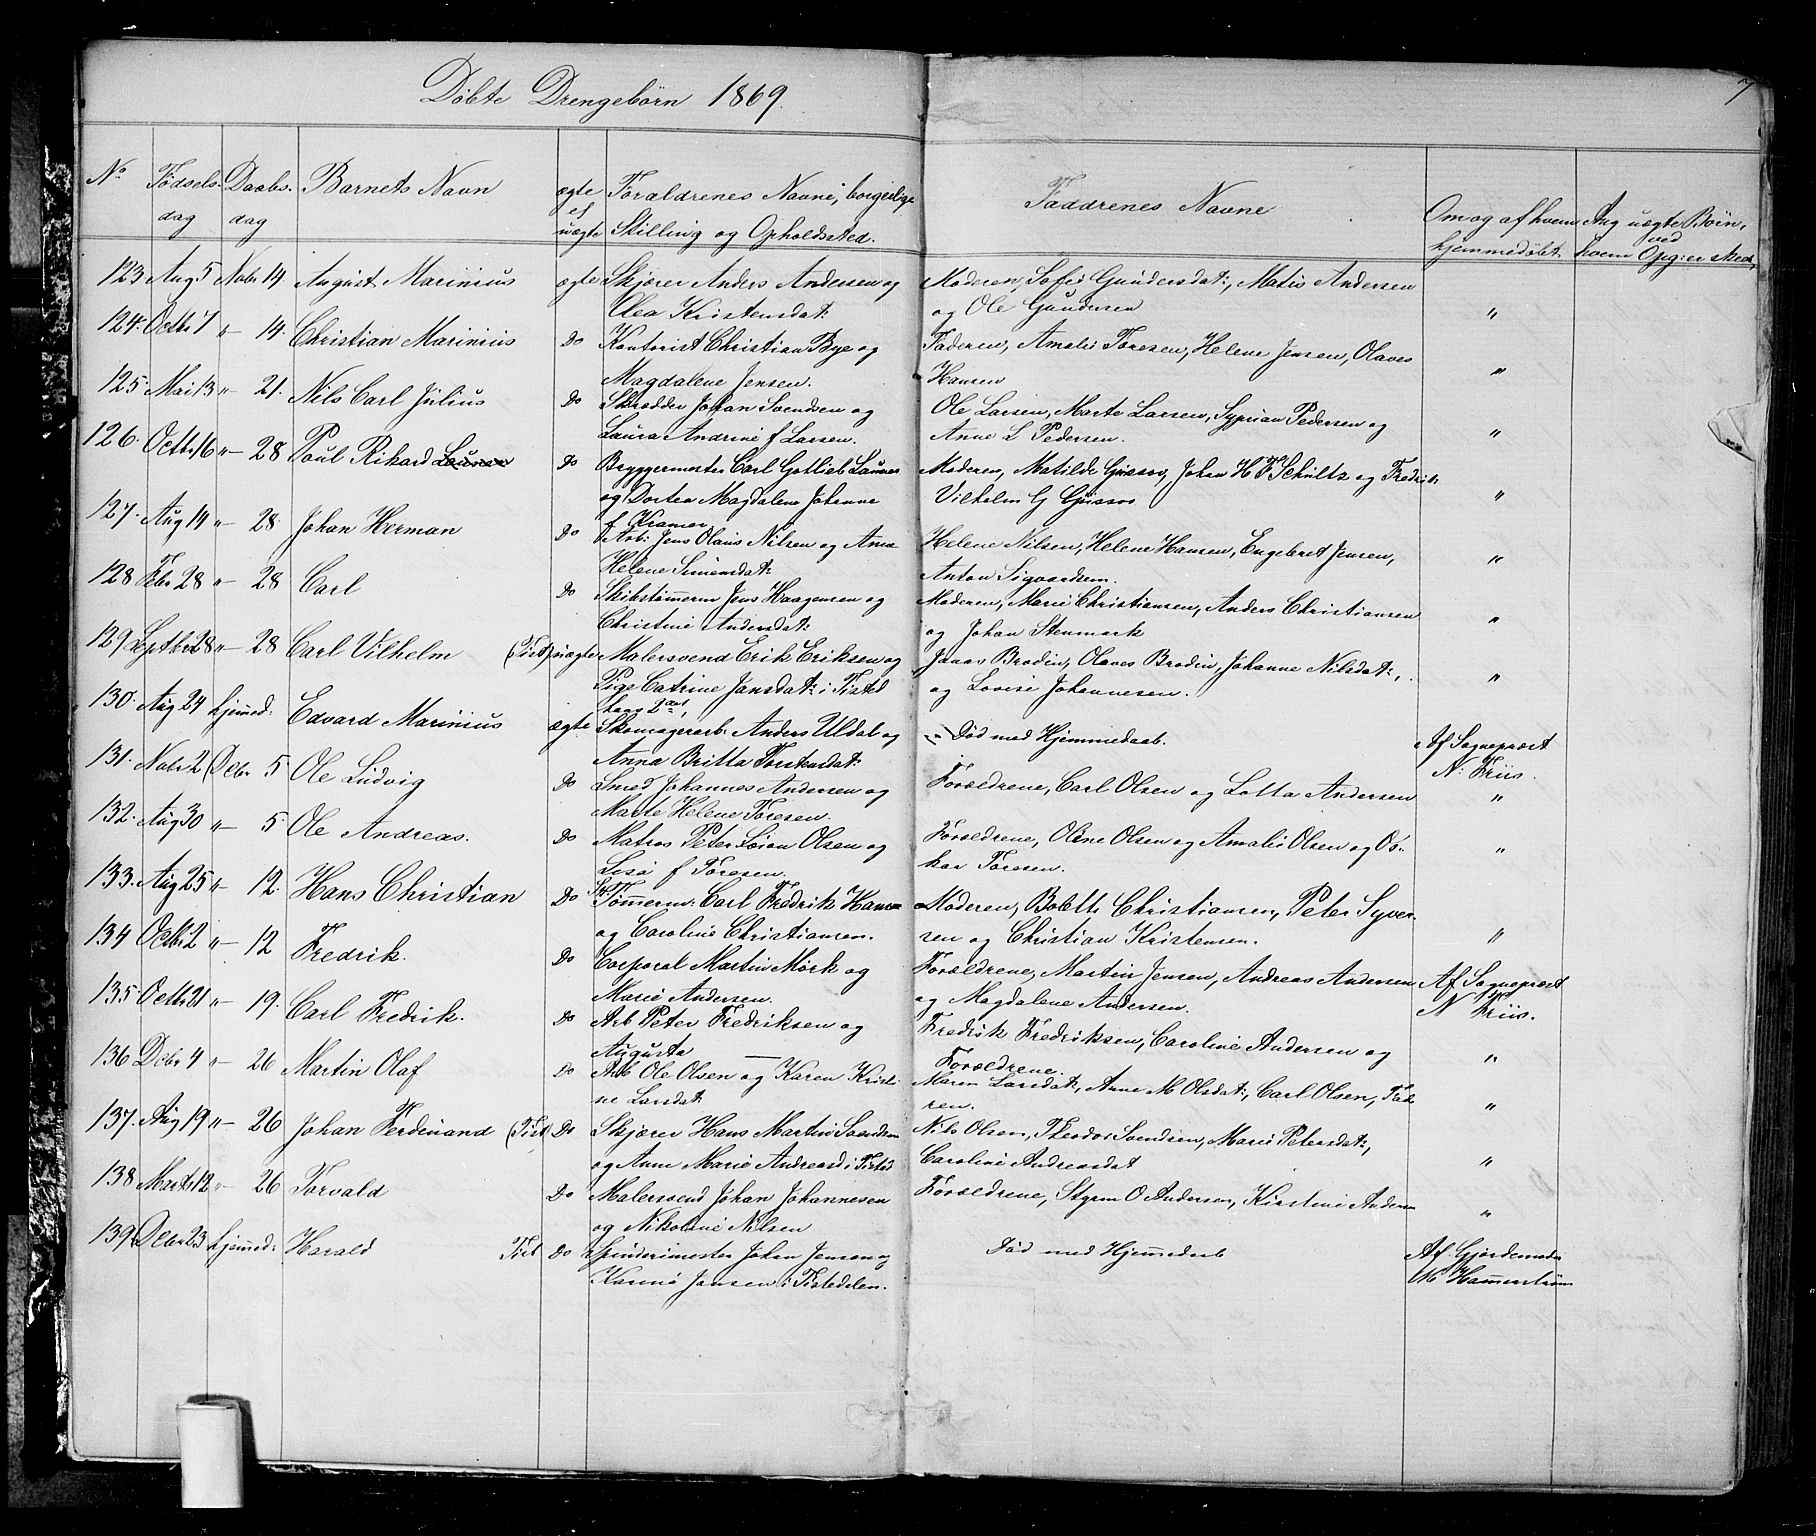 7
Döbte Drengebörn 1869.
No Födsels- dag Daabs- dag Barnets Navn ægte el uægte Forældrenes Navne, borgerlige Stilling og Opholdsted. Faddrenes Navne Om og af hvem hjemmedöbt. Ang uægte Börn, ved hvem Opg: er sked,
123 Aug 5 Novbr 14 August Marinius ægte Skjærer Anders Andersen og Moderen, Sofie Gundersdat:, Matis Andersen
Olea Kristensdat: og Ole Gundersen "
124. Octbr 7 "- 14. Christian Marinius Do Kontorist Christian Bye og Faderen, Amalie Toresen, Helene Jensen, Olaves
Magdalene Jensen. Hansen "
125. Mai 13 "- 21. Nils Carl Julius Do Skrædder Johan Svendsen og Ole Larsen, Marte Larsen, Syprian Pedersen og
Laura Andrine f Larsen. Anne L Pedersen. "
126. Octbr 16 "- 28 Paul Rikard Do Bryggermester Carl Gotlieb Moderen, Matilde Gussov, Johan H F Schultz og Fredrik
og Dortea Magdalene Johanne Vilhelm G Gussov "
f Kramer
127. Aug 19 "- 28. Johan Herman Do Arb: Jens Olaus Nilsen og Anne Helene Nilsen, Helene Hansen, Engebret Jensen,
Helene Simensdat: Anton Sigvardsen. "
128 Febr 28 "- 28 Carl Do Skibstömerm Jens Haagensen og Moderen, Marie Christiansen, Anders Christiansen
Christine Andersdat: og Johan Stenmark "
129 Septbr 28 "- 28 Carl Vilhelm (Tist) uægte Malersvend Erik Eriksen og Jonas Brodin, Olaves Brodin, Johanne Nilsdat:,
Pige Catrine Jansdat: i Tistd og Lovise Johannesen. "
130. Aug 24 hjemmed: Edvard Marinius ægte Skomagerarb: Anders Uldal og Död med Hjemmedaab. Af Sognepræst
Anna Britta Torstensdat: N: Friis.
131. Novbr 2 Decbr 5 Ole Ludvig Do Smed Johannes Andersen og Forældrene, Carl Olsen og Lotta Andersen "
Marte Helene Toresen.
132. Aug 30 "- 5. Ole Andreas. Do Matros Peter Olsen og Forældrene, Oline Olsen og Amalie Olsen og Os-
Lisa f Toresen. kar Toresen. "
133. Aug 25 "- 12. Hans Christian Do Tömerm: Carl Fredrik Hansen Moderen, Bolette Christiansen, Peter Syver-
og Caroline Christiansen. sen og Christian Kristensen. "
134 Octbr 2 "- 12 Fredrik. Do Corporal Martin Mörk og Forældrene, Martin Jensen, Andreas Andersen Af Sognepræst
Marie Andersen. og Magdalene Andersen. N Friis.
135. Octbr 21 "- 19. Carl Fredrik. Do Arb Peter Fredriksen og Fredrik Fredriksen, Caroline Andersen og
Augusta — Forældrene. "
136 Decbr 4 "- 26 Martin Olaf Do Arb Ole Olsen og Karen Kristi- Maren Larsdat:, Anne M Olsdat:, Carl Olsen, Fade
ne Larsdat: ren. "
137. Aug 19 "- 26 Johan Ferdinand (Tist) Do Skjærer Hans Martin Svendsen Nils Olsen, Theodor Svendsen, Marie Petersdat:,
og Anne Marie Andreasd i Tistd Caroline Andreasdat "
138 Marts 12 "- 26 Torvald Do Malersvend Johan Johannesen Forældrene, Styrm O Andersen, Kirstine Andersen
og Nikoline Nilsen "
139 Decbr 23 hjemmed: Harald Tist Do Spinderimester Johan Jensen og Död med Hjemmedaab Af Gjordemoder
Karine Jansen i Tistedalen. M Hammerström